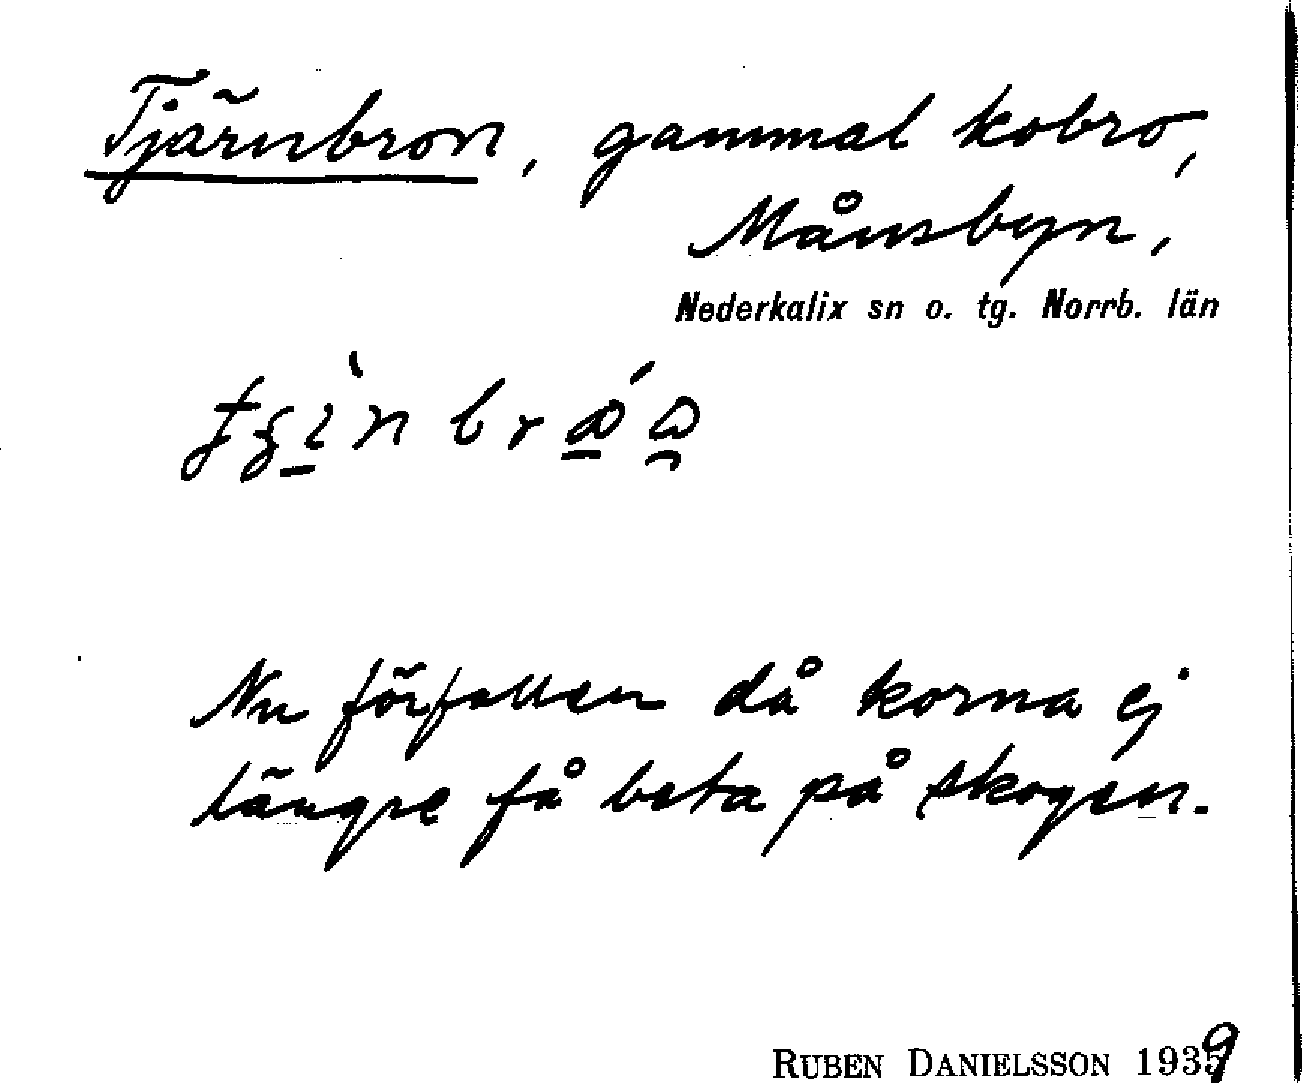 Tjärnbron, gammal kobro,
Månsbyn,
Nederkalix sn o. tg. Norrb. län
Nu förfallen då korna ej
längre få beta på skogen.
RUBEN DANIELSSON 1939